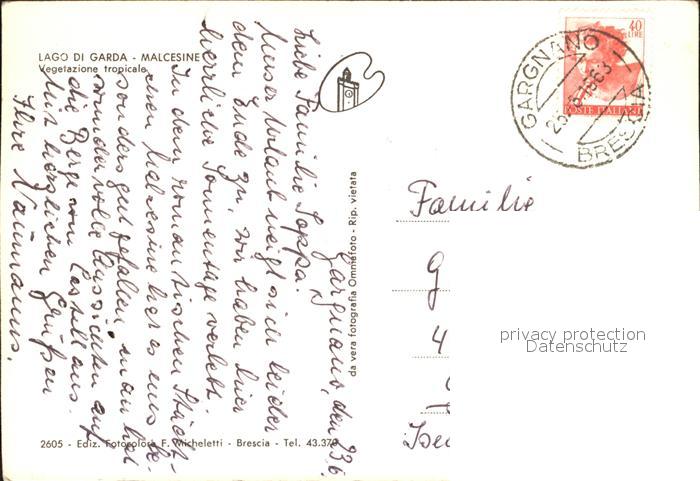 LAGO DI GARDA - MALCESINE
Vegetazione tropicale
Gargnano, den 23.6.
Liebe Familie Soppa!
Unser Urlaub neigt sich leider
dem Ende zu, wir haben hier
herrliche Sonnentage verlebt.
In dem romantischen Städt-
chen Malcesine hat es uns be-
sonders gut gefallen, man hat
wundervolle Aussichten auf
die Berge vom Castell aus.
Mit herzlichen Grüßen
Ihre Naumanns.
da vera fotografia Ommafoto - Rip. vietata
2605 - Ediz. Fotocolora F. Micheletti - Brescia - Tel. 43.379
40
LIRE
POSTE ITALIANE
GARGNANO
BRESCIA
Familie
G
4
privacy protection
Datenschutz